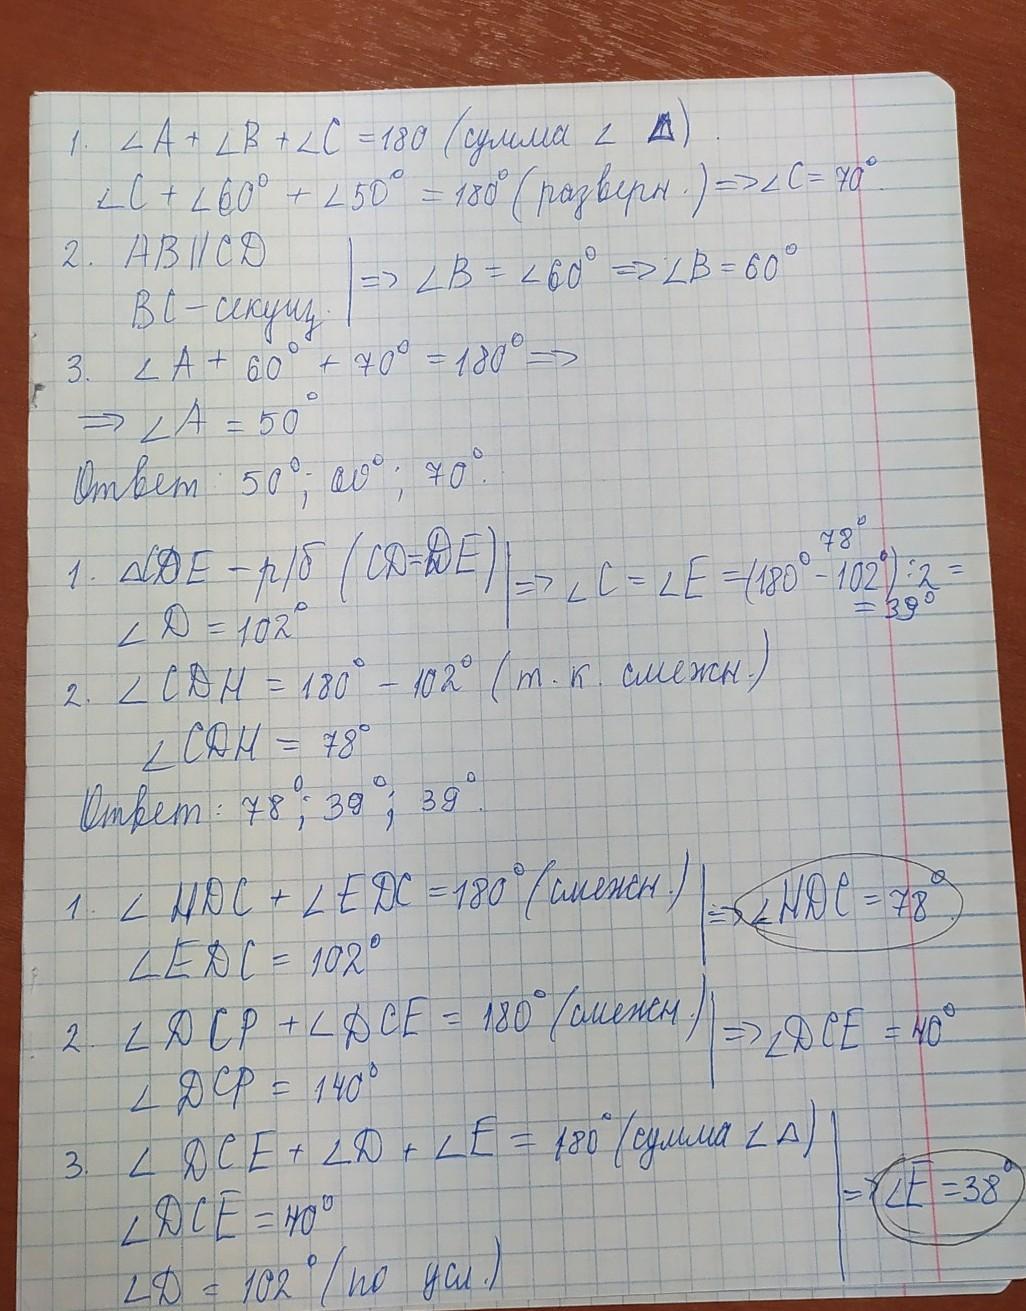 1. ∠A + ∠B + ∠C = 180 (сумма ∠ Δ).
∠C + ∠60° + ∠50° = 180° (разверн.) => ∠C = 70°.
2. AB || CD
BC – секущ. | => ∠B = ∠60° => ∠B = 60°
3. ∠A + 60° + 70° = 180° =>
=> ∠A = 50°
Ответ: 50°; 60°; 70°.
1. ΔCDE – р/б (CD=DE) | => ∠C = ∠E = (180° – 102°) : 2 =
78°
= 39°
∠D = 102°
2. ∠CDH = 180° – 102° (т. к. смежн.)
∠CDH = 78°
Ответ: 78°; 39°; 39°.
1. ∠HDC + ∠EDC = 180° (смежн.) | => ∠HDC = 78°
∠EDC = 102°
2. ∠DCP + ∠DCE = 180° (смежн.) | => ∠DCE = 40°
∠DCP = 140°
3. ∠DCE + ∠D + ∠E = 180° (сумма ∠ Δ)
∠DCE = 40° | => ∠E = 38°
∠D = 102° (по усл.)